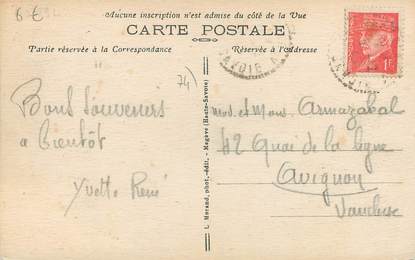 6 €
Aucune inscription n'est admise du côté de la Vue
CARTE POSTALE
Partie réservée à la Correspondance
Réservée à l'Adresse
SAVOIE
1F
74)
Bons Souvenirs
a bientôt
Yvette René
L. Morand, phot.-édit. - Megève (Haute-Savoie)
Mad. et Mons. Armazabal
42 Quai de la ligne
Avignon
Vaucluse